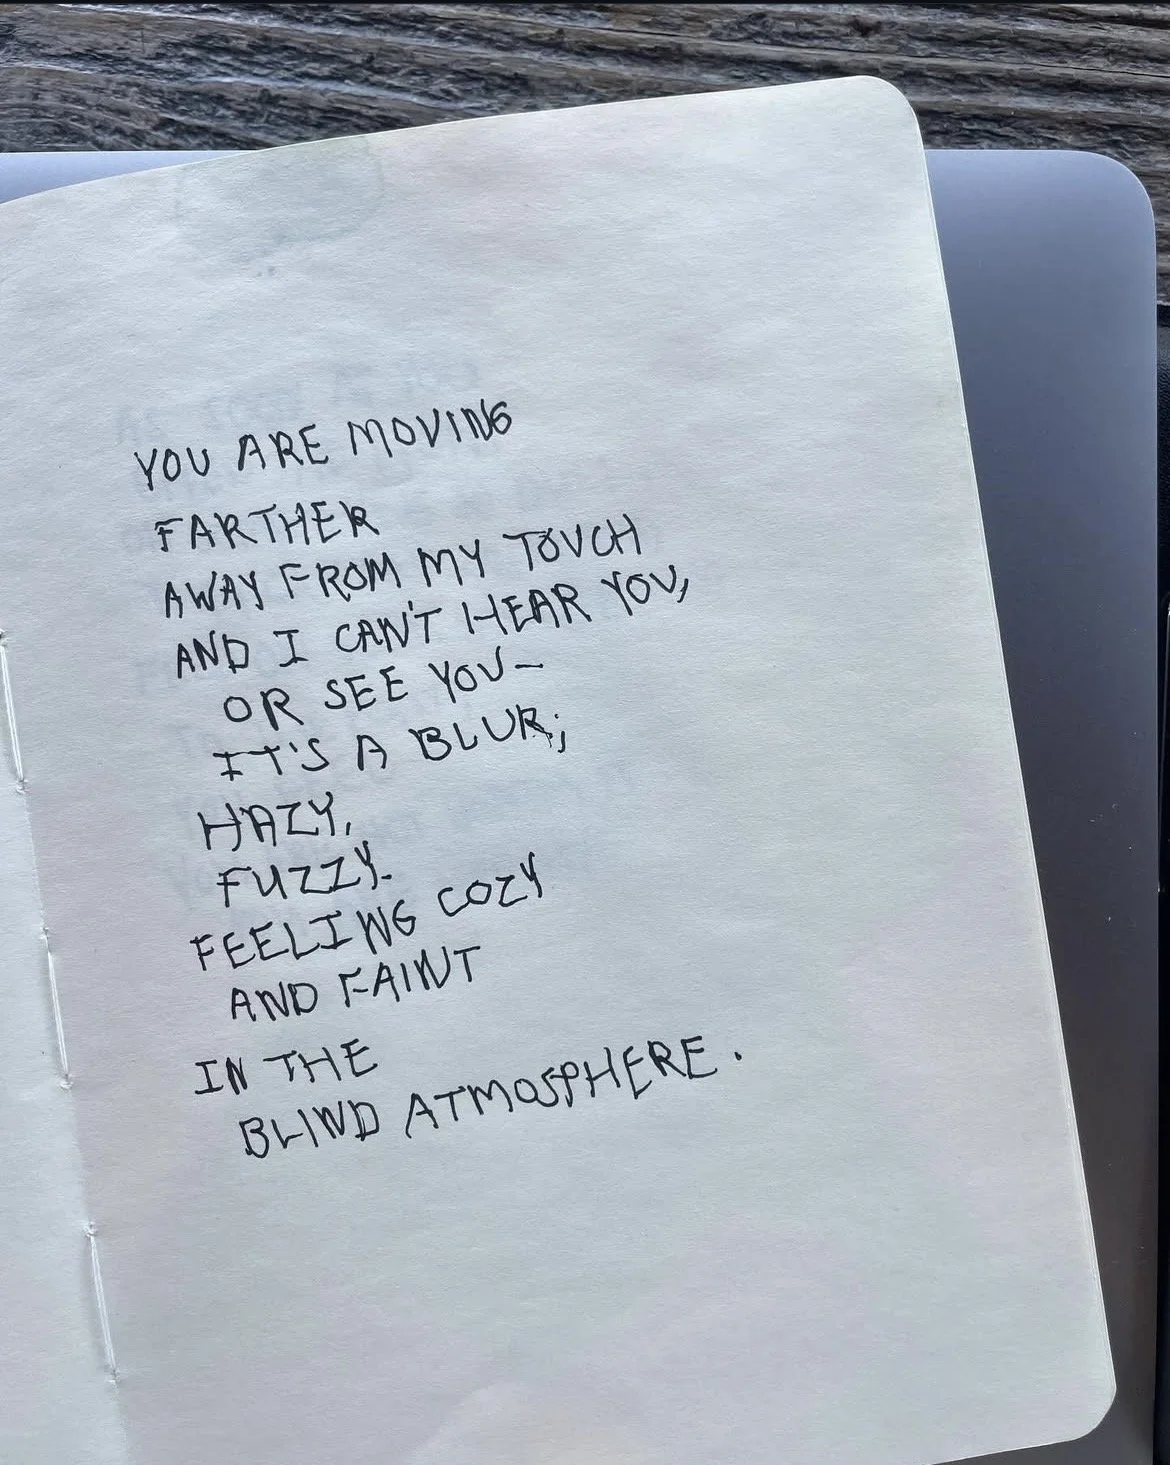 YOU ARE MOVING
FARTHER
AWAY FROM MY TOUCH
AND I CAN'T HEAR YOU,
OR SEE YOU—
IT'S A BLUR;
HAZY,
FUZZY.
FEELING COZY
AND FAINT
IN THE
BLIND ATMOSPHERE.